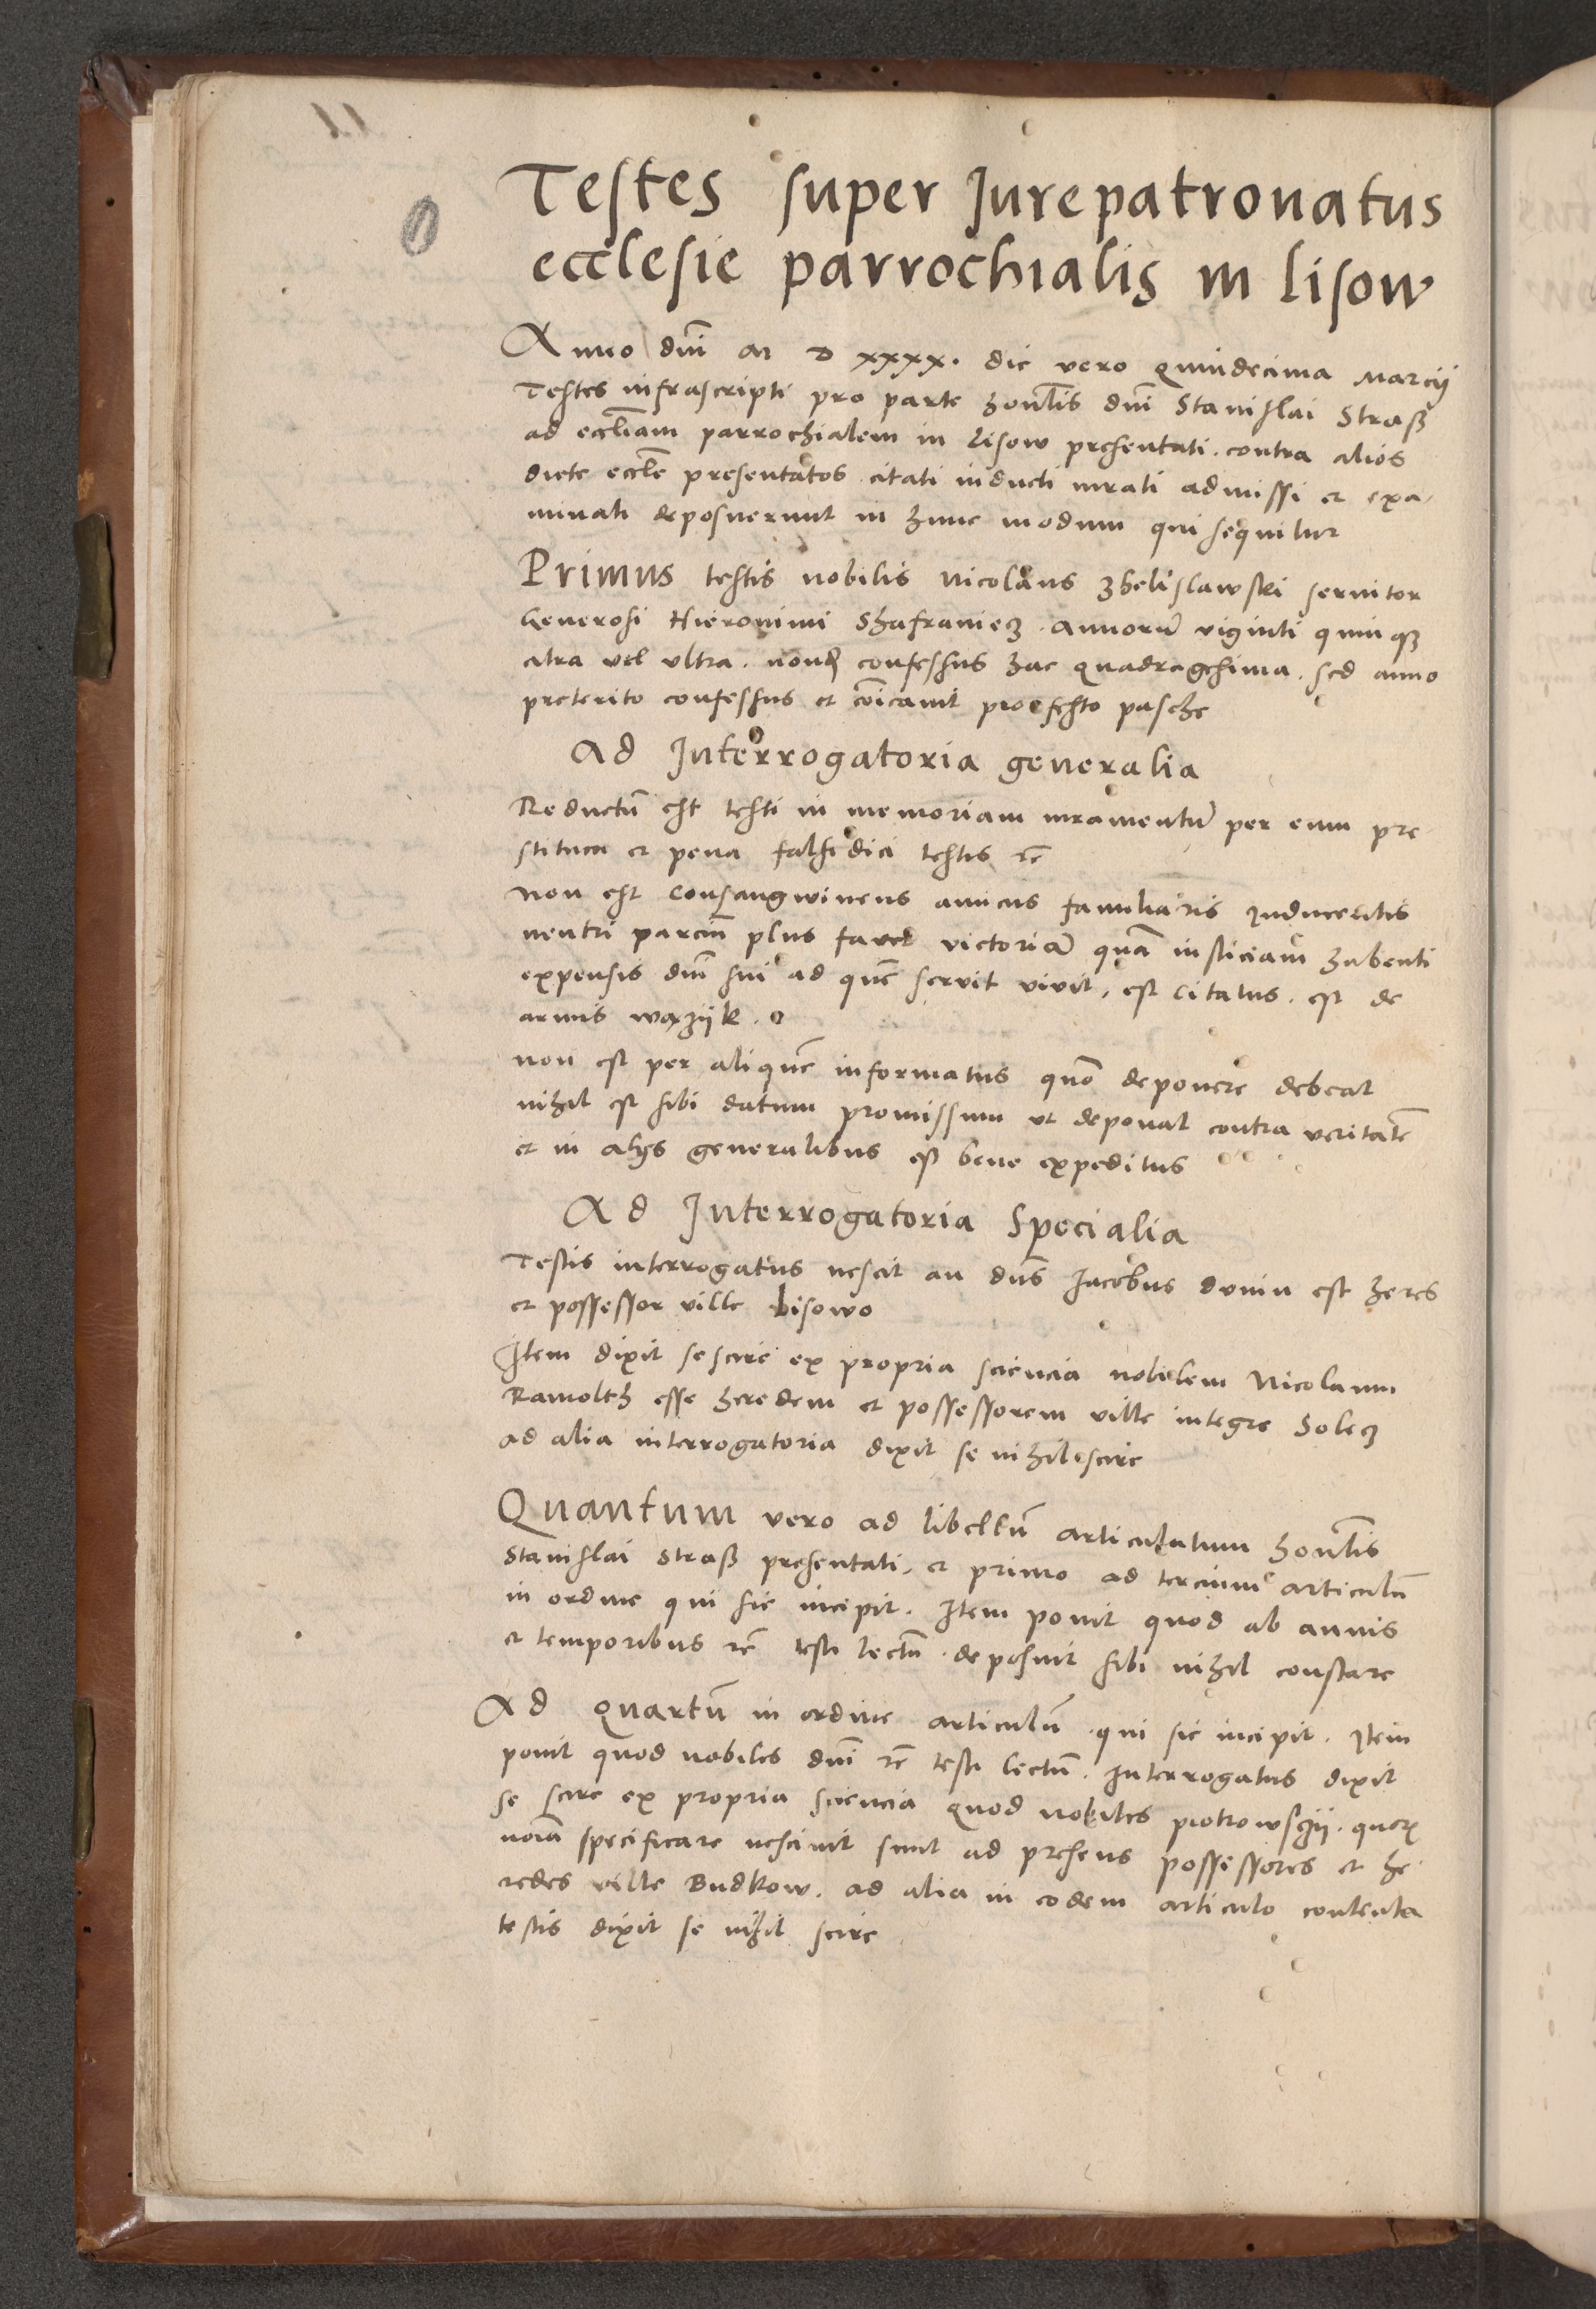 Testes super Jurepatronatus
ecclesie parrochialis in lisow
Anno dni M D xxxx. die vero quindecima Marcij
Testes infrascripti pro parte honlis dni Stanislai Straß
ad eccliam parrochialem in Lisow presentati. contra alios
dicte eccle presentatos citati inducti iurati admissi et exa
minati deposuerunt in hunc modum qui sequitur
Primus testis nobilis Nicolaus zhelislawski servitor
Generosi Hieronimi Shafraniecz. annorū viginti quinqz
citra vel ultra. nondū confessus hac quadragesima. sed anno
preterito confessus et cōicavit pro festo pasche
Ad Interrogatoria generalia
Reductū est testi in memoriam iuramentū per eum pre
stitum et pena falsidici testis rc̄
Non est consangwineus amicus familiaris Inducentis
neutri parciū plus favet victoriā quā iusticiam habenti
expensis dni sui ad quē servit vivit, est citatus. est de
armis wążijk.
non est per aliquē informatus quō deponere debeat
nihil est sibi datum promissum ut deponat contra veritatē
et in alijs generalibus est bene expeditus
Ad Interrogatoria Specialia
Testis interrogatus nescit an dns Jacobus dunin est heres
et possessor ville Lisowo
Item dixit se scire ex propria sciencia nobilem Nicolaum
Ramolth esse heredem et possessorem ville integre Solecz
ad alia interrogatoria dixit se nihil scire
Quantum vero ad libellū articulatum honlis
Stanislai Straß presentati, et primo ad tercium articulū
in ordine qui sic incipit. Item ponit quod ab annis
et temporibus rc̄ testi lectū. deposuit sibi nihil constare
Ad quartū in ordine articulū. qui sic incipit. Item
ponit quod nobiles dni rc̄ testi lectū. Interrogatus dixit
se scire ex propria sciencia quod nobiles piotrowsczij. quorꝝ
noīa specificare nescivit sunt ad presens possessores et he
redes ville Budkow. ad alia in eodem articulo contenta
testis dixit se nihil scire